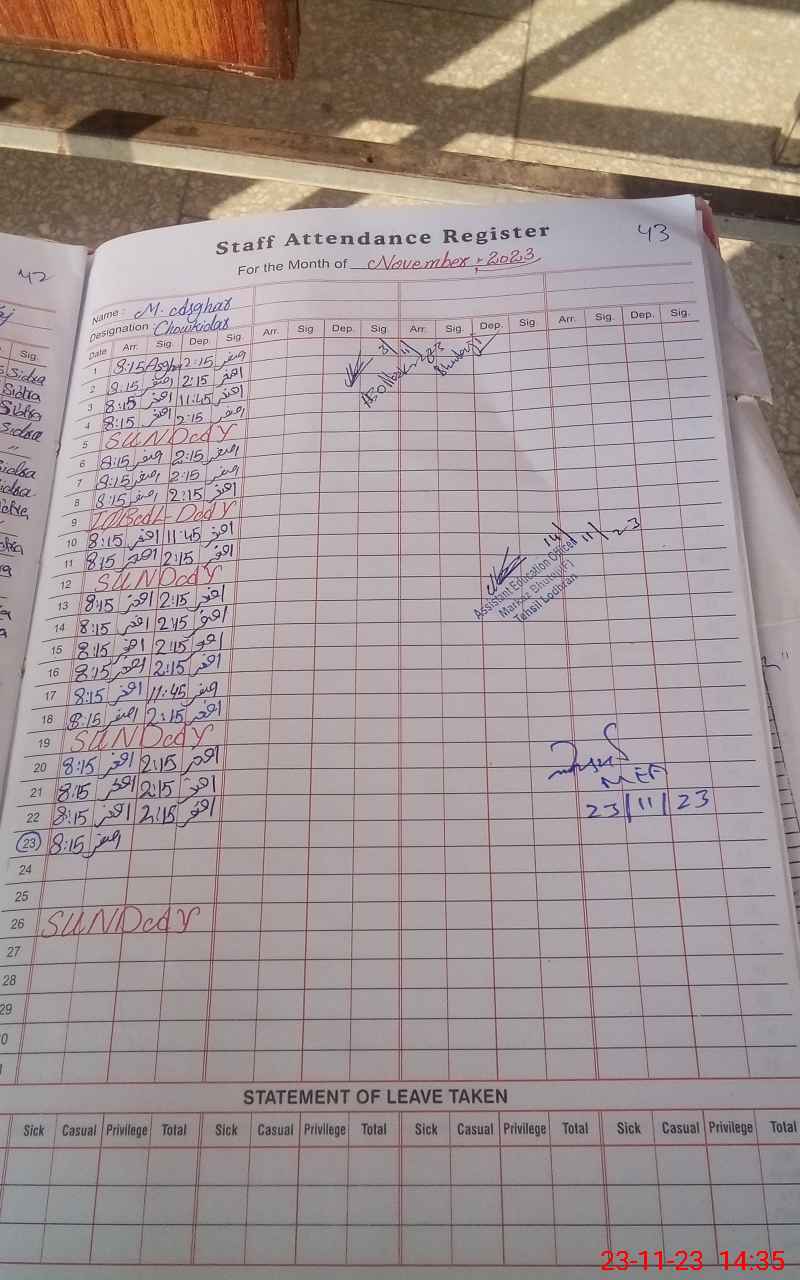 Staff Attendance Register 43
For the Month of November, 2023
Name: M. Asghar
Designation Chowkidar
Date Arr. Sig. Dep. Sig. Arr. Sig. Dep. Sig. Arr. Sig. Dep. Sig. Arr. Sig. Dep. Sig.
1 8:15 Asghr 2:15 اصغر
2 8:15 اصغر 2:15 اصغر
3 8:15 اصغر 11:45 اصغر
4 8:15 اصغر 2:15 اصغر
5 SUNDAY
6 8:15 اصغر 2:15 اصغر
7 8:15 اصغر 2:15 اصغر
8 8:15 اصغر 2:15 اصغر
9 IQBAL DAY
10 8:15 اصغر 11:45 اصغر
11 8:15 اصغر 2:15 اصغر
12 SUNDAY
13 8:15 اصغر 2:15 اصغر
14 8:15 اصغر 2:15 اصغر
15 8:15 اصغر 2:15 اصغر
16 8:15 اصغر 2:15 اصغر
17 8:15 اصغر 11:45 اصغر
18 8:15 اصغر 2:15 اصغر
19 SUNDAY
20 8:15 اصغر 2:15 اصغر
21 8:15 اصغر 2:15 اصغر
22 8:15 اصغر 2:15 اصغر
23 8:15 اصغر
24
25
26 SUNDAY
27
28
29
0
14/11/23
Assistant Education Officer
Markaz Bhuteji(F)
Tehsil Lodhran
MEA
23/11/23
42
Sig.
Sidra
Sidra
Sidra
Sidra
"
Sidra
Sidra
STATEMENT OF LEAVE TAKEN
Sick Casual Privilege Total Sick Casual Privilege Total Sick Casual Privilege Total Sick Casual Privilege Total
23-11-23 14:35